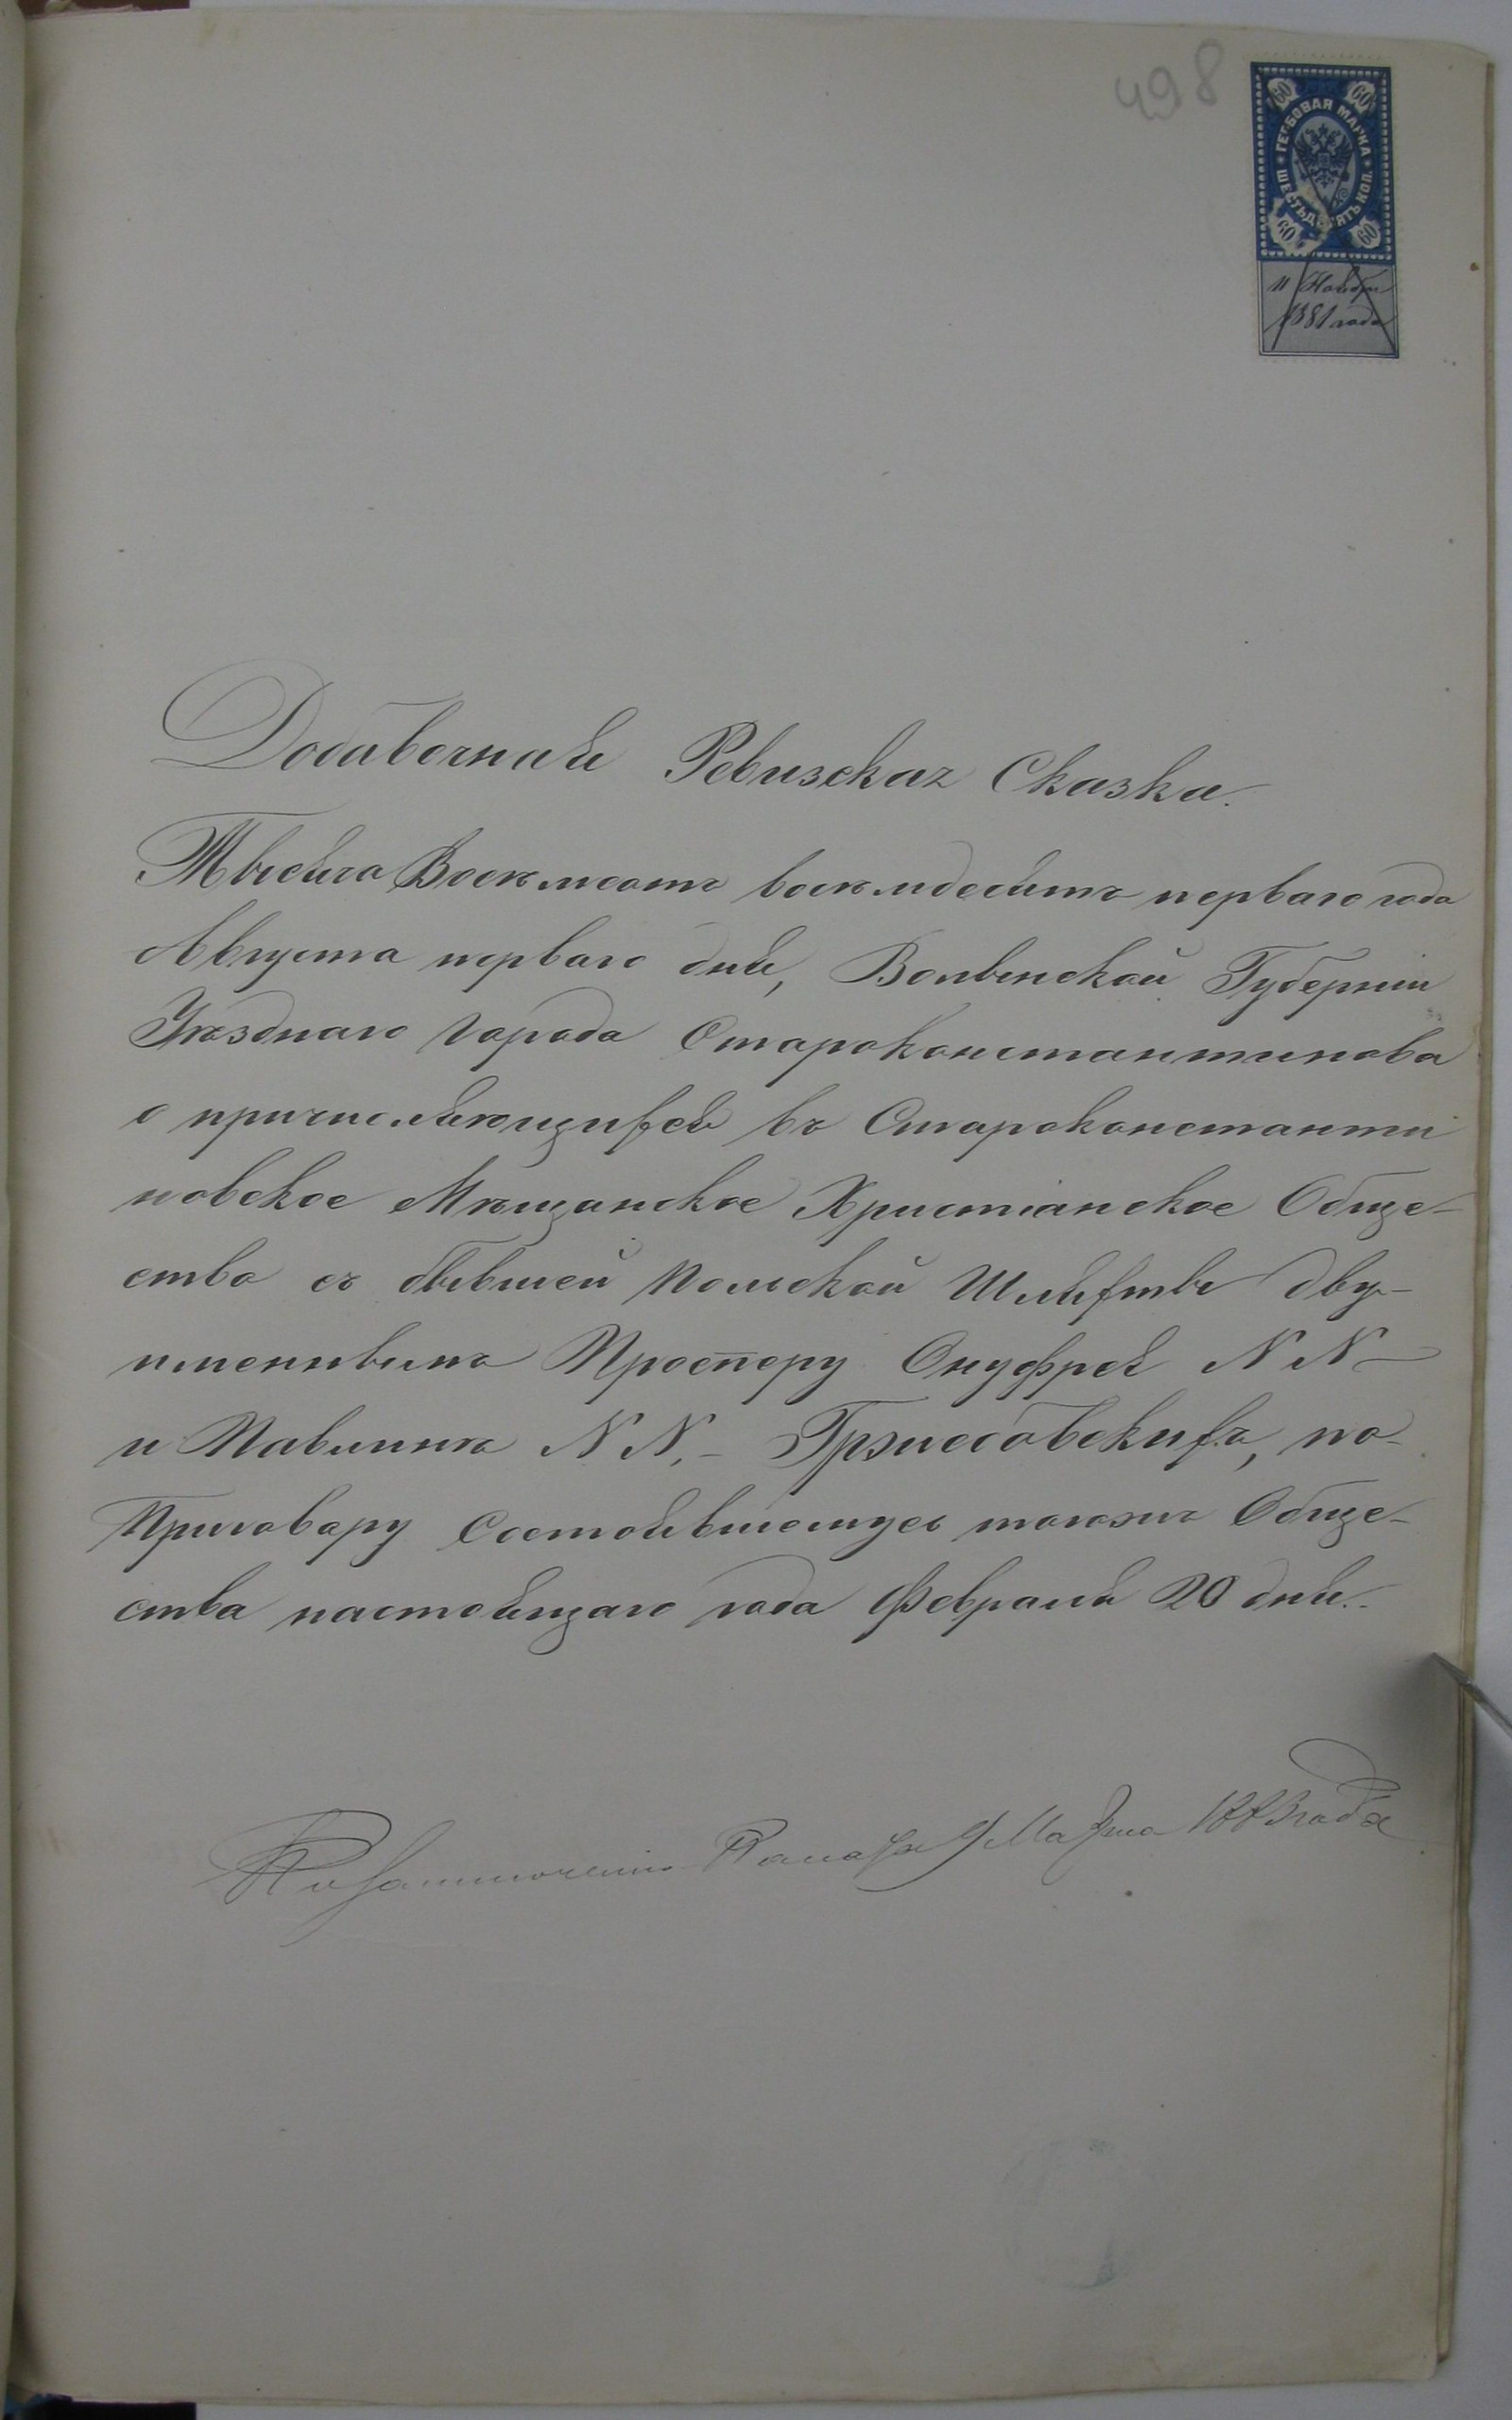 498
ГЕРБОВАЯ МАРКА
ШЕСТЬДЕСЯТЪ КОП.
60 60
60 60
11 Ноября
1881 года
Добавочная Ревизская Сказка.
Тысяча Восемсотъ восемдесятъ перваго года
Августа перваго дня, Волынской Губерніи
Уѣзднаго города Староконстантинова
о причисляющихся въ Староконстанти
новское Мѣщанское Христіанское Обще-
ство съ бывшей Польской Шляхты дву-
именнымъ Просперу Онуфрею NN -
и Павлинѣ NN, - Гржесовскихъ, по-
Приговору Состоявшемуся тогожъ Обще-
ства настоящаго года Февраля 20 дня.
Палаты 9 Марта 1883 года